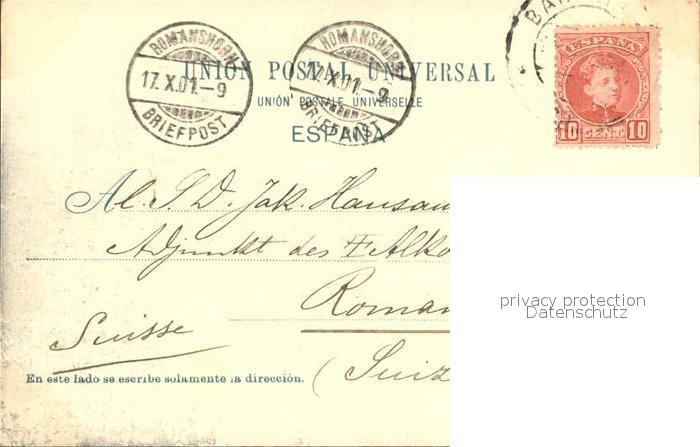 ROMANSHORN
17.X.01.-9
BRIEFPOST
ROMANSHORN
17.X.01.-9
BRIEFPOST
BAR
ESPAÑA
10 CENT. 10
UNION POSTAL UNIVERSAL
UNION POSTALE UNIVERSELLE
ESPAÑA
Al. S. D. Jak. Hansam
Adjunkt des
Roman
Suisse
(Suiz
En este lado se escribe solamente la dirección.
privacy protection
Datenschutz